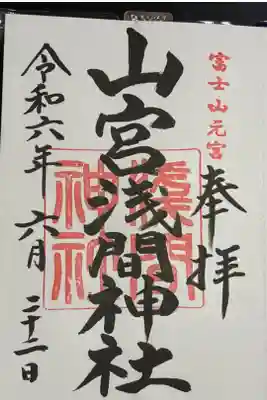 富士山元宮
奉拝
山宮浅間神社
令和六年 六月 二十二日
淺間
神社